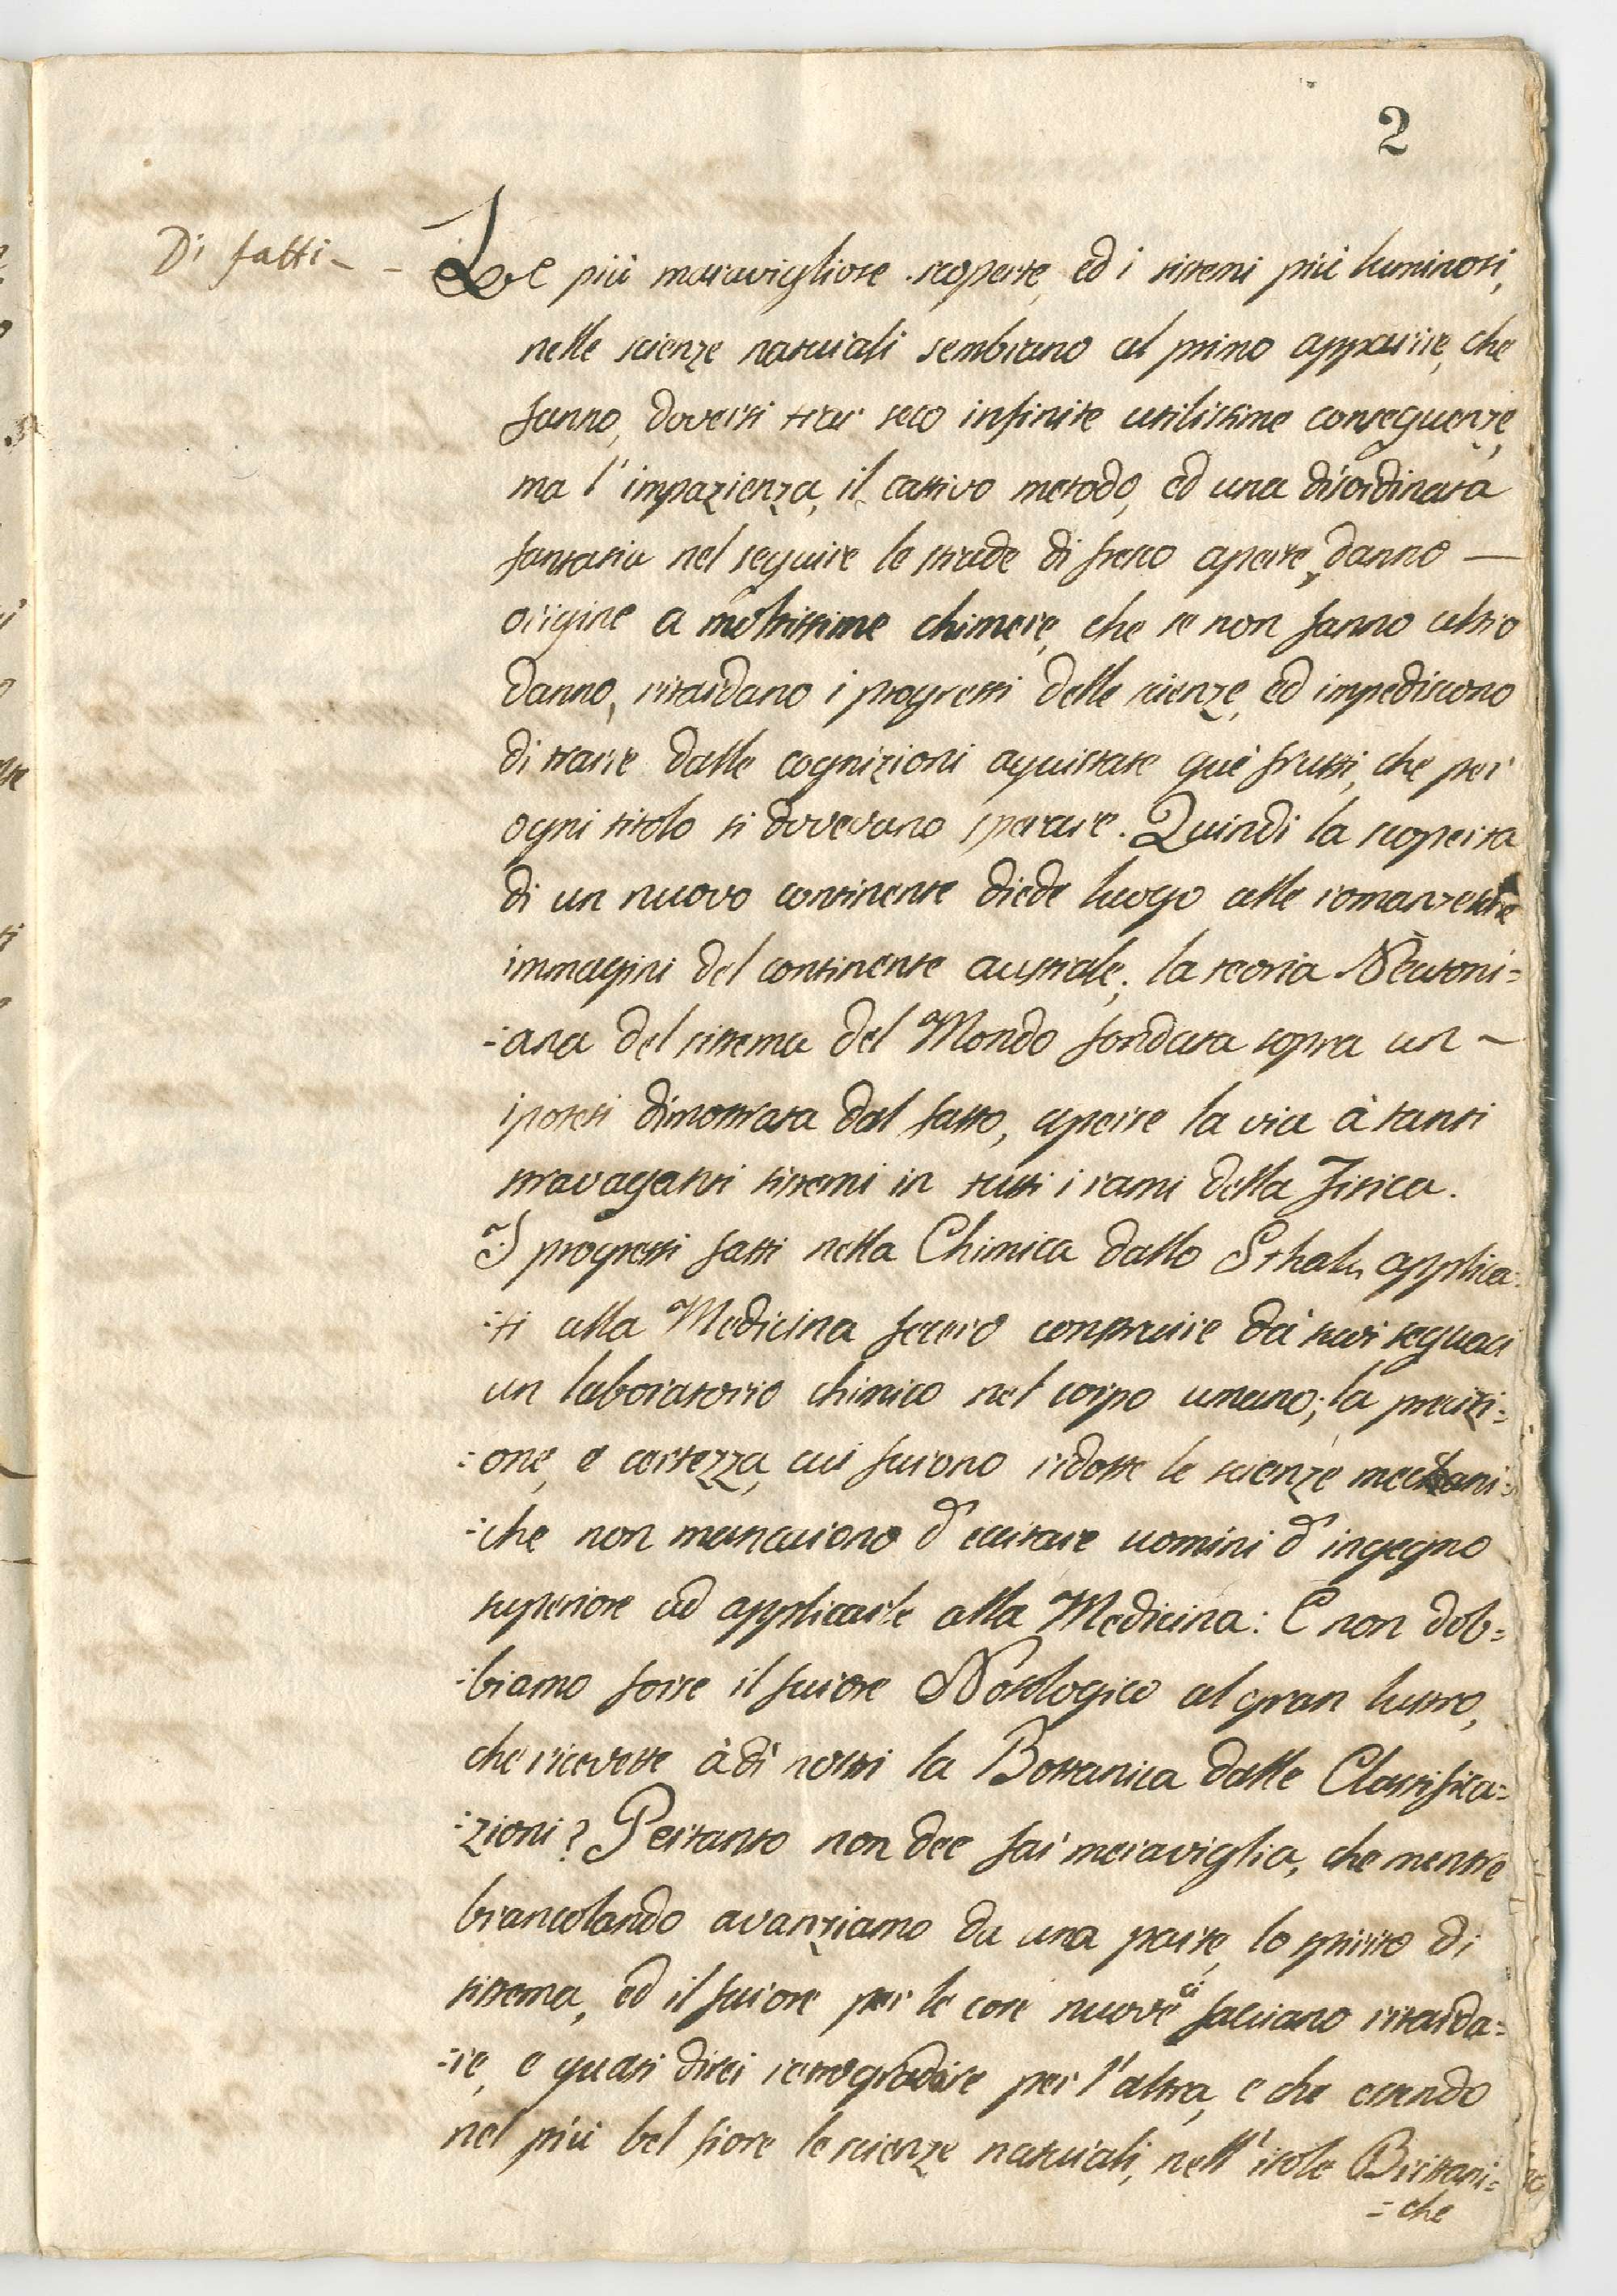 2
Di fatti - -
Le più maravigliose scoperte, ed i sistemi più luminosi,
nelle scienze naturali sembrano al primo apparire, che
fanno, doversi trar seco infinite utilissime conseguenze,
ma l'impazienza, il cattivo metodo, ed una disordinata
fantasia nel seguire le strade di fresco aperte, danno —
origine a moltissime chimere, che se non fanno altro
danno, ritardano i progressi delle scienze, ed impediscono
di trarre dalle cognizioni aquistate què frutti, che per
ogni titolo si dovevano sperare. Quindi la scoperta
di un nuovo continente diede luogo alle romanzesche
immagini del continente australe; la teoria Nèutoni=
=ana del sistema del Mondo fondata sopra un —
ipotesi dimostrata dal fatto, aperse la via à tanti
stravaganti sistemi in tutti i rami della Fisica.
I progressi fatti nella Chimica dallo Sthal, applica=
=ti alla Medicina fecero construire dà suoi seguaci
un laboratorio chimico nel corpo umano; la precizi=
=one, e certezza, cui furono ridotte le scienze mechani=
=che non mancarono d'eccitare uomini d'ingegno
superiore ad applicarle alla Medicina: E non dob=
=biamo forse il furore Nosologico al gran lustro,
che ricevette à dì nostri la Bottanica dalle Classifica=
=zioni? Pertanto non dee far meraviglia, che mentre
brancolando avanziamo da una parte, lo spirito di
sistema, ed il furore per le cose nuove ci facciano ritarda=
=re, e quasi direi retrogradire per l'altra, e che essendo
nel più bel fiore le scienze naturali, nell'isole Brittani=
=che